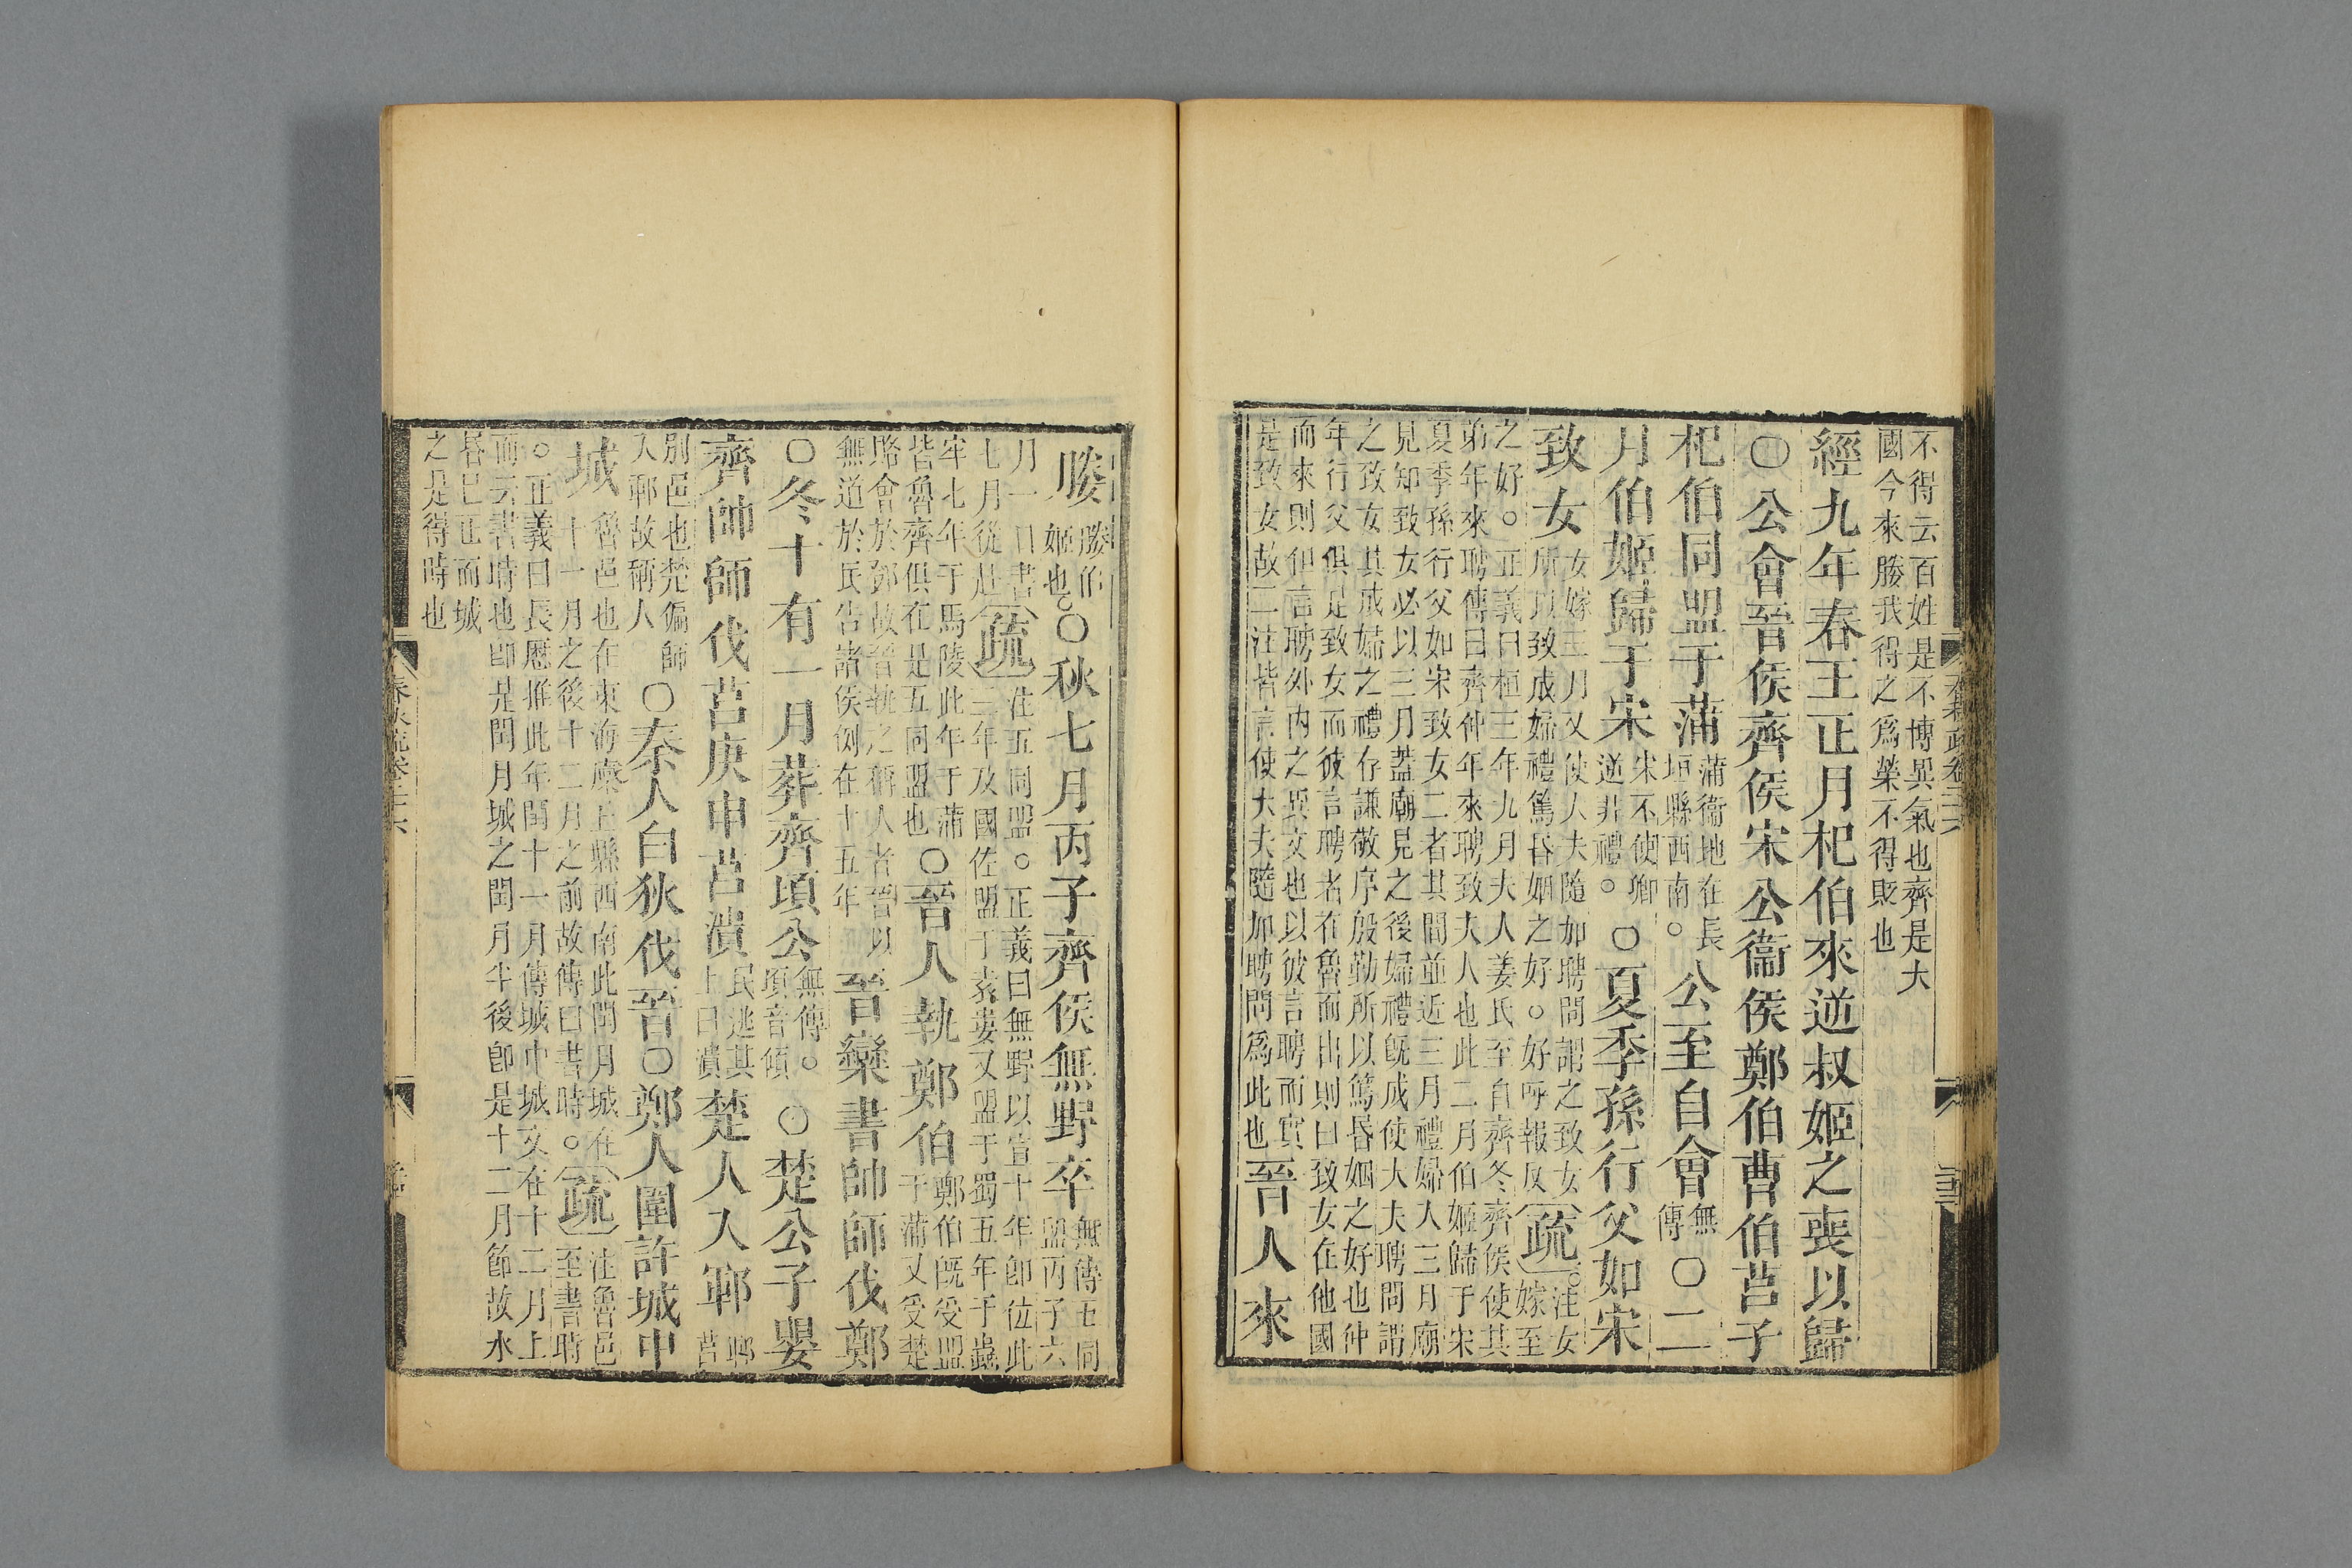 不得云百姓是不博異氣也齊是大
國今來媵我得之爲榮不得貶也
經九年春王正月杞伯來逆叔姬之喪以歸
○公會晉侯齊侯宋公衞侯鄭伯曹伯莒子
杞伯同盟于蒲
蒲衞地在長
垣縣西南。
公至自會
無
傳
○二
月伯姬歸于宋
宋不使卿
逆非禮。
○夏季孫行父如宋
致女
女嫁三月又使大夫隨加聘問謂之致女
所以致成婦禮篤昏姻之好。好呼報反
疏
。注女
嫁至
之好。正義曰桓三年九月夫人姜氏至自齊冬齊侯使其
弟年來聘傳曰齊仲年來聘致夫人也此二月伯姬歸于宋
夏季孫行父如宋致女二者其間並近三月禮婦人三月廟
見知致女必以三月蓋廟見之後婦禮旣成使大夫聘問謂
之致女其成婦之禮存謙敬序殷勤所以篤昏姻之好也仲
年行父俱是致女而彼言聘者在魯而出則曰致女在他國
而來則但言聘外内之異文也以彼言聘而實
是致女故二注皆言使大夫隨加聘問爲此也
晉人來
媵
媵伯
姬也。
○秋七月丙子齊侯無野卒
無傳五同
盟丙子六
月一日書
七月從赴
疏
注五同盟。正義曰無野以宣十年卽位此
二年及國佐盟于袁婁又盟于蜀五年于蟲
牢七年于馬陵此年于蒲
皆魯齊俱在是五同盟也
○晉人執鄭伯
鄭伯旣受盟
于蒲又受楚
賂會於鄧故晉執之稱人者晉以
無道於民告諸侯例在十五年
晉欒書帥師伐鄭
○冬十有一月葬齊頃公
無傳。
頃音傾
○楚公子嬰
齊帥師伐莒庚申莒潰
民逃其
上曰潰
楚人入鄆
鄆莒
別邑也楚偏師
入鄆故稱人
○秦人白狄伐晉○鄭人圍許城中
城
魯邑也在東海廩丘縣西南此閏月城在
十一月之後十二月之前故傳曰書時。
疏
注魯邑
至書時
。正義曰長厤推此年閏十一月傳城中城文在十二月上
而云書時也卽是閏月城之閏月半後卽是十二月節故水
昏巳正而城
之是得時也
春秋疏卷二十六